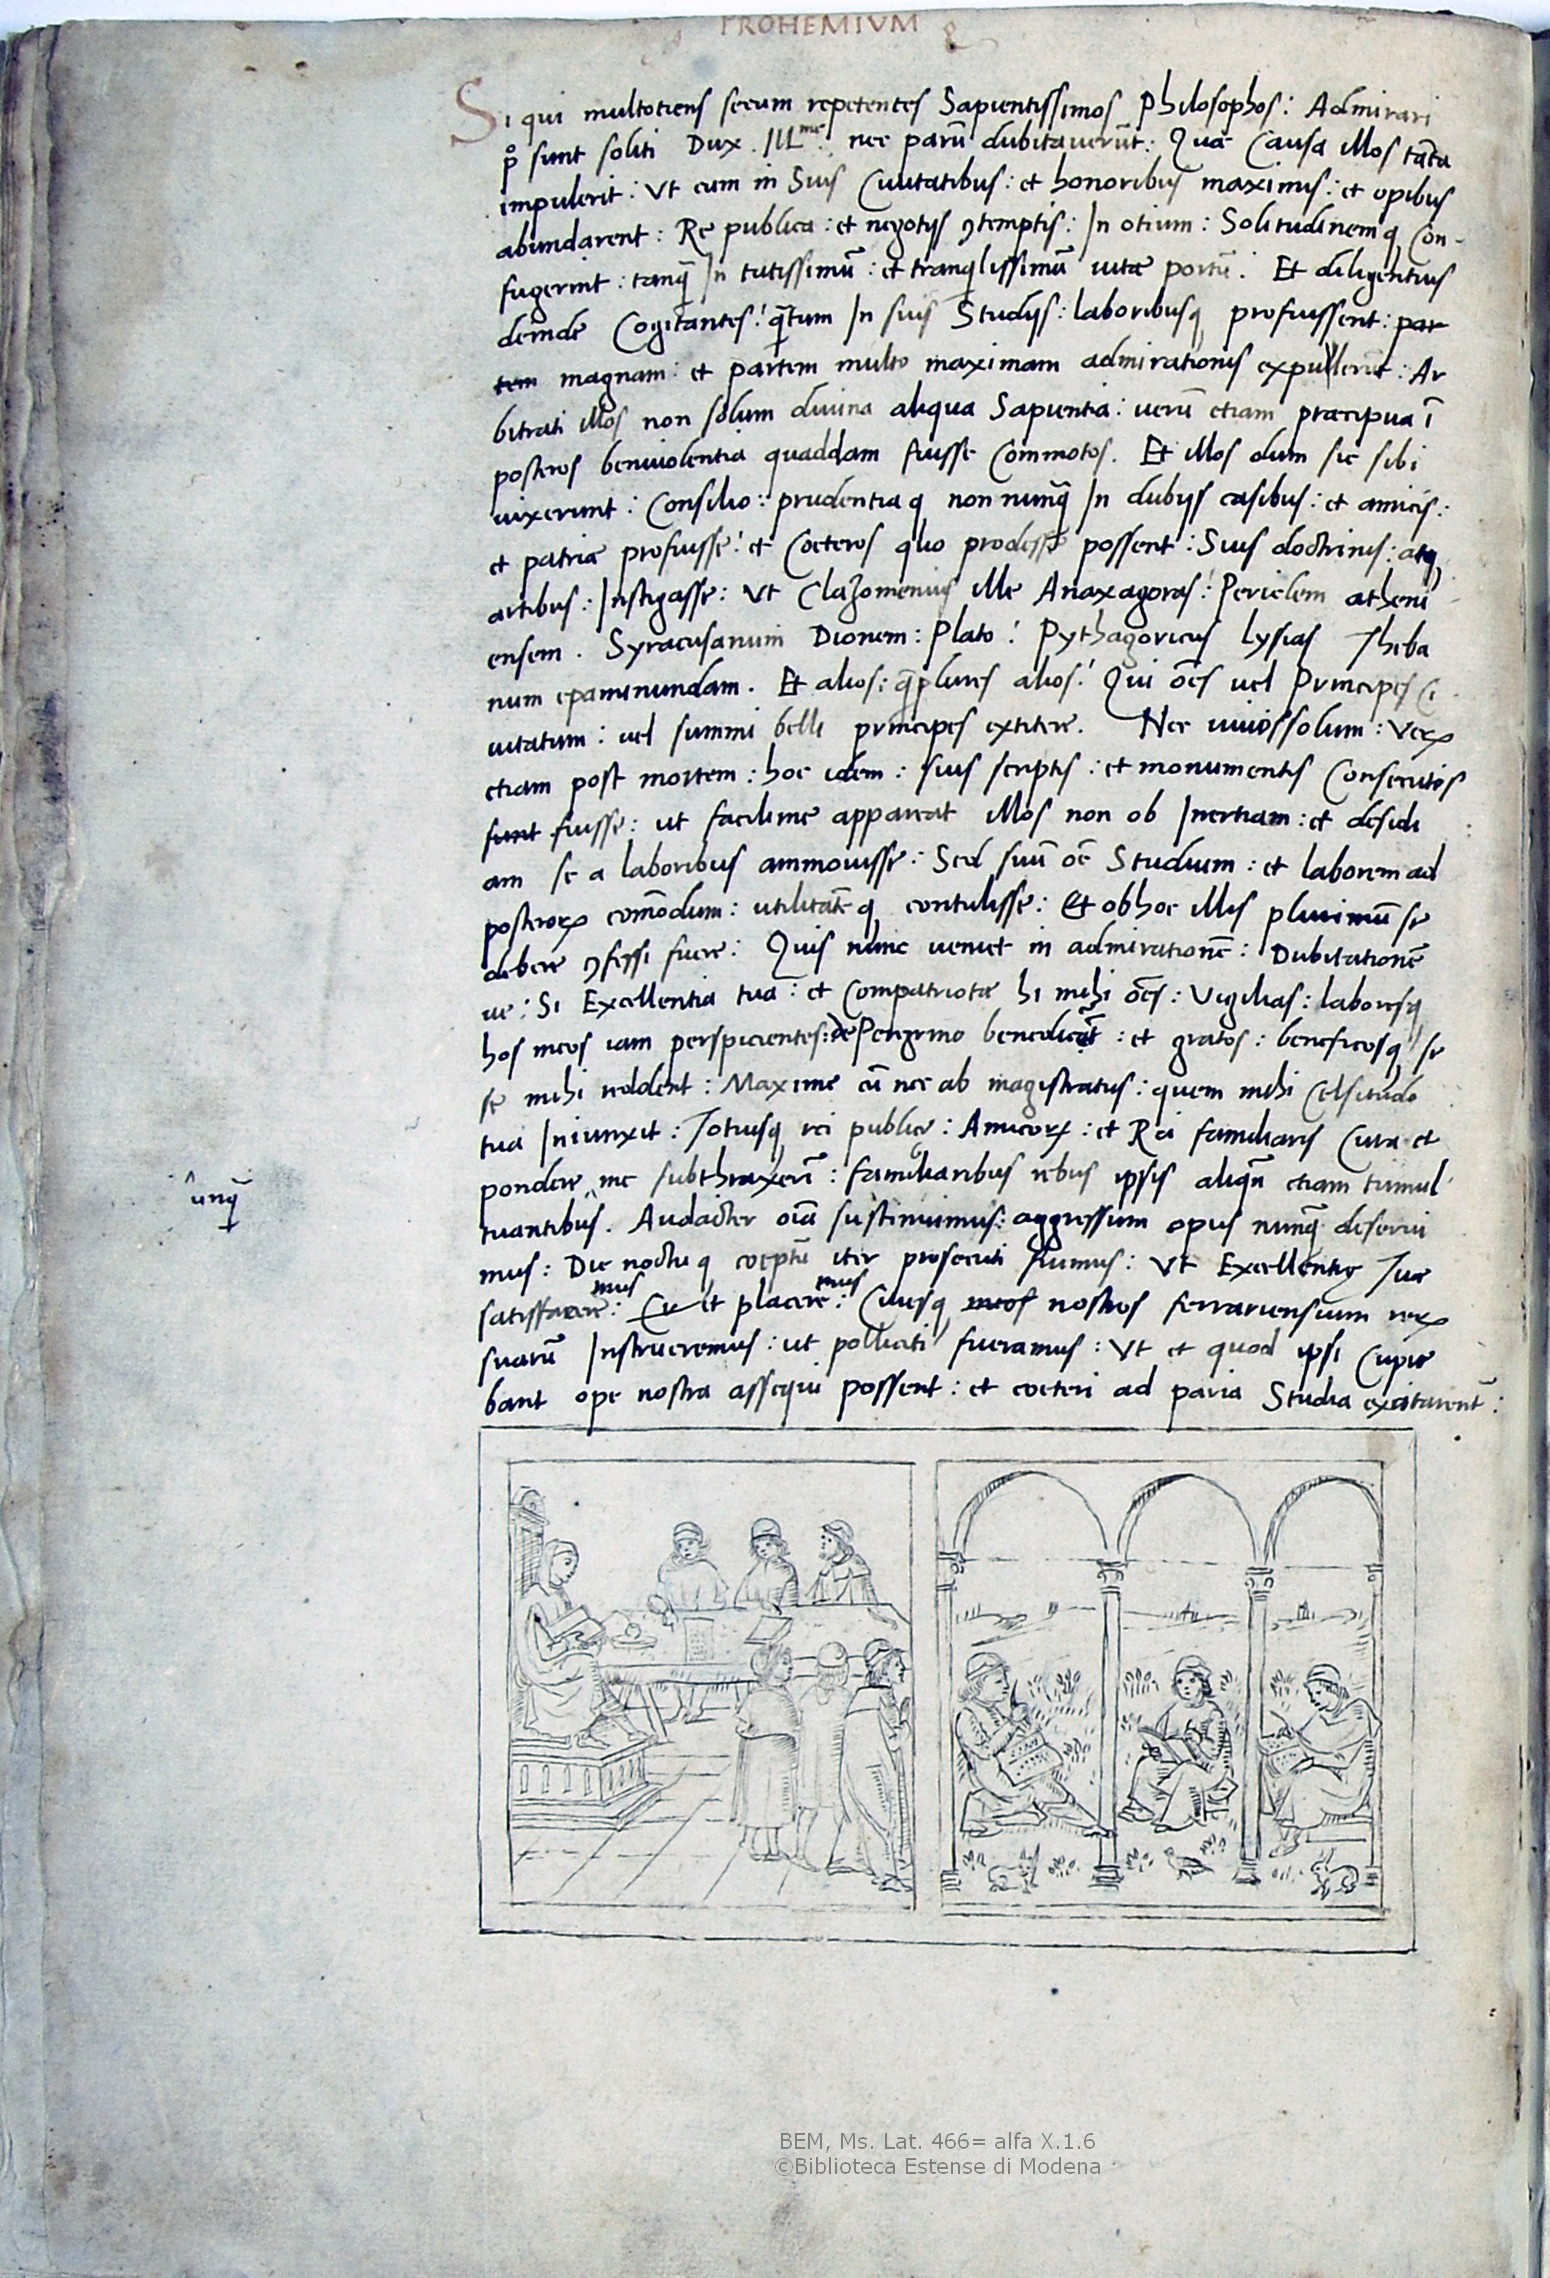 PROHEMIVM
Si qui multotiens secum repetentes Sapientissimos Philosophos: Admirari
sunt soliti Dux Illme: nec parū dubitauerūt: Qua Causa illos tāta
impulerit: Vt cum in Suis Ciuitatibus: et honoribus maximis: et opibus
abundarent: Re publica: et negotijs ꝯtemptis: In otium: Solitudinemq Con-
fugerint: tanq̄ In tutissimū: et tranqlissimū uitæ portū. Et diligentius
deinde Cogitantes: q̄tum In suis Studijs: laboribusq profuissent: par
tem magnam: et partem multo maximam admirationis expullerūt: Ar
bitrati illos non solum diuina aliqua Sapientia: uerū etiam præcipua ī
posteros beniuolentia quaddam fuisse Commotos. Et illos dum sic sibi
uixerunt: Consilio: prudentiaq non nunq̄ In dubijs casibus: et amicis:
et patriæ profuisse: et Coeteros quo prodesse possent: Suis doctrinis: atq
artibus: Instigasse: Vt Clazomenius ille Anaxagoras: Periclem atheni
ensem. Syracusanum Dionem: Plato: Pythagoricus lysias Theba
num epaminundam. Et alios: q̄plures alios: Qui oēs uel Principes Ci
uitatum: uel summi belli principes extitere. Nec uiuos solum: Veꝝ
etiam post mortem: hoc idem: suis scriptis: et monumentis Consecutos
sunt fuisse: ut facilime appareat illos non ob Inertiam: et desidi
am se a laboribus ammouisse: Sed suū oē Studium: et laborem ad
posteroꝝ com̄odum: utilitatē q contulisse: Et ob hoc illis plurimū se
debere ꝯfessi fuere: Quis nunc ueniet in admirationē: Dubitationē
ue: Si Excellentia tua: et Compatriotæ hi mihi oēs: Vigilias: laboresq
hos meos iam perspicientes: de Peregrino benedicāt: et gratos: beneficosq se
se mihi reddent: Maxime cū nec ab magistratus: quem mihi Celsitudo
tua Iniunxit: Totiusq rei publicæ: Amicoꝝ: et Rei familiaris Cura et
pondere me subthraxerī: familiaribus rebus ipsis aliqn̄ etiam tumul
unq̄
tuantibus. Audacter oīa sustinuimus: aggressum opus nunq̄ deserui
mus: Die noctuq coeptū iter prosecuti fuimus: Vt Excellentiæ Tuæ
mus mus
satisfacere: et placere: Ciuisq meos nostros ferrariensium reꝝ
suarū Instrueremus: ut polliciti fueramus: Vt et quod ipsi Cupie
bant ope nostra assequi possent: et coeteri ad paria Studia excitarent̄:
BEM, Ms. Lat. 466= alfa X.1.6
©Biblioteca Estense di Modena